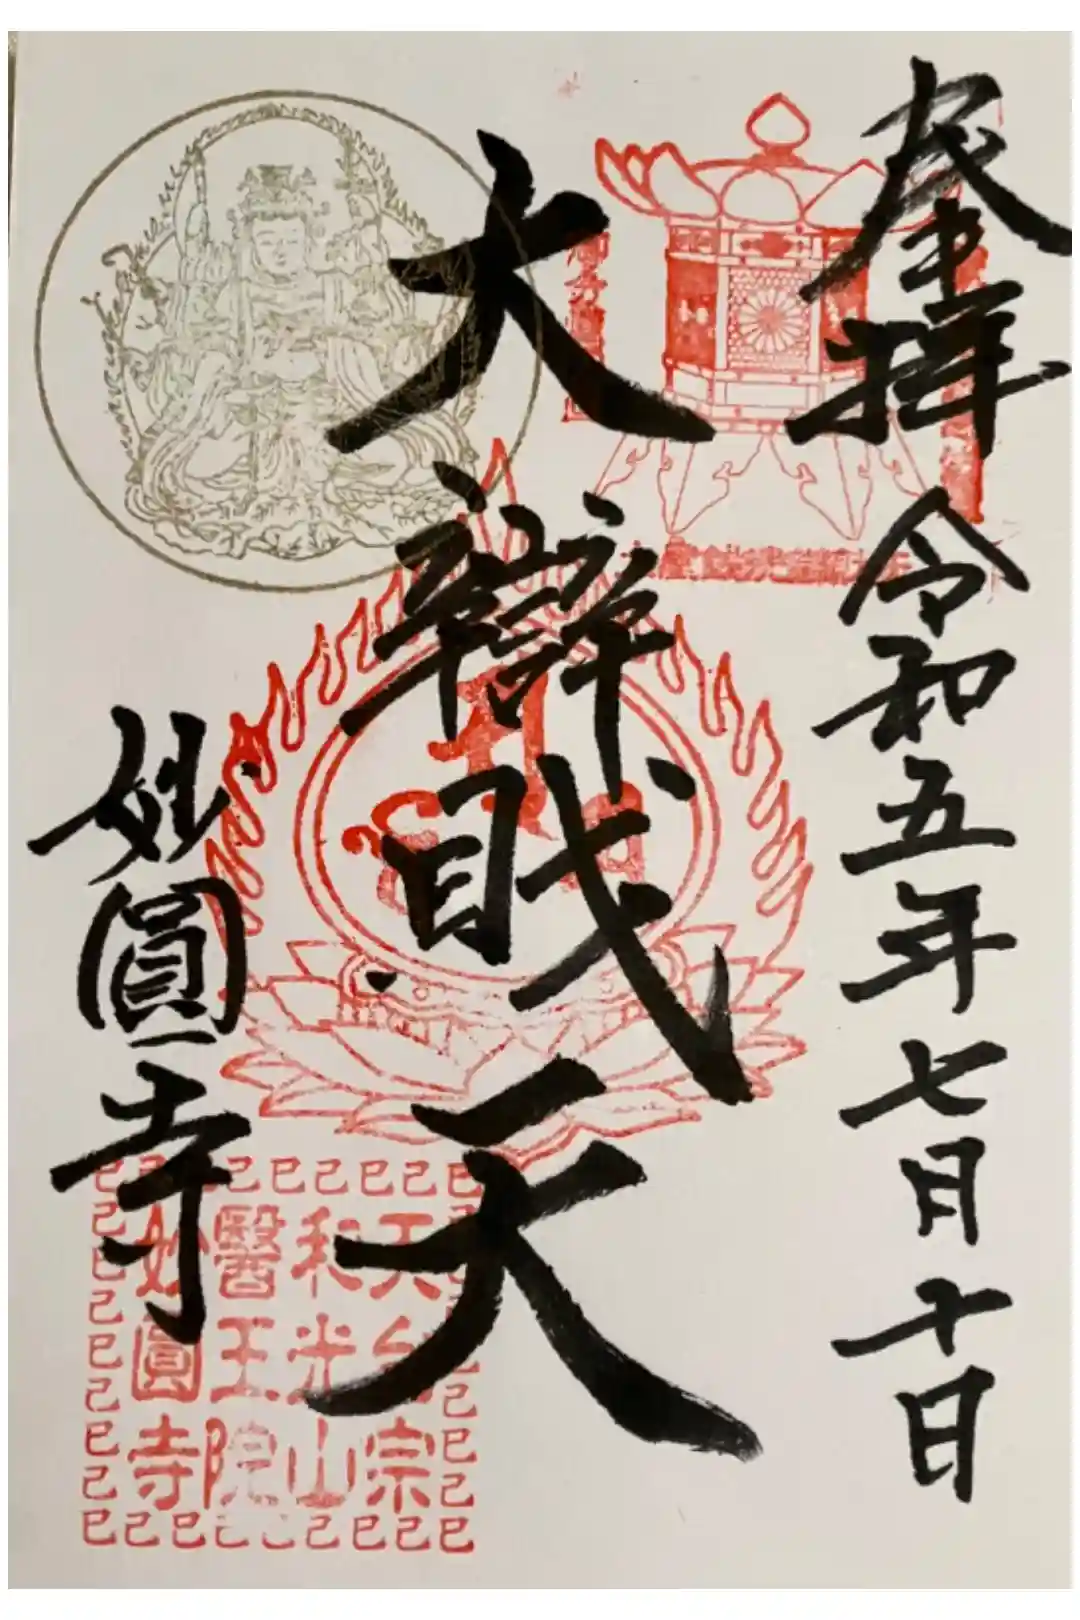 奉拝
令和五年七月十日
大辯戝天
妙圓寺
天台宗
和光山
醫王院
妙圓寺